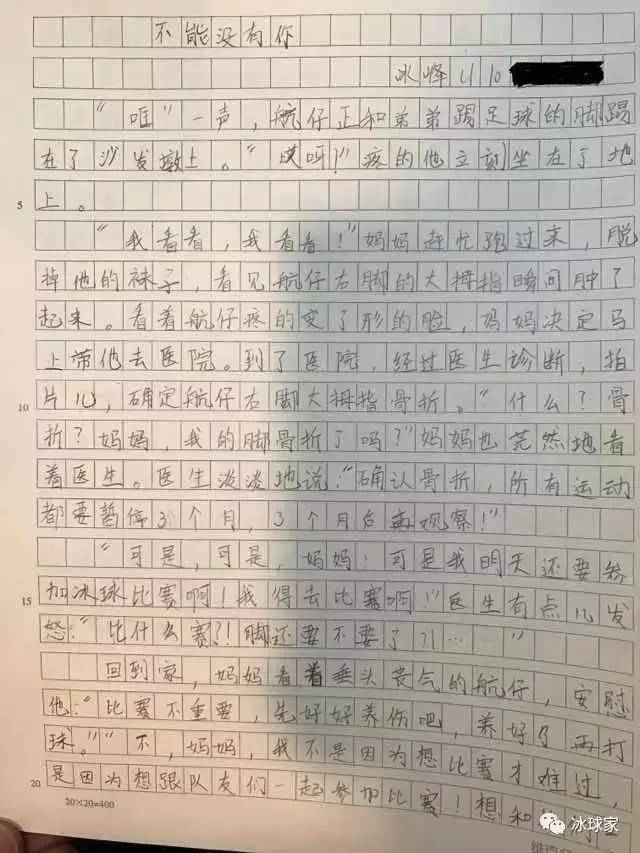 不能没有你
冰峰U10
“咣”一声，航仔正和弟弟踢足球的脚踢
在了沙发墩上。“哎呀！”疼的他立刻坐在了地
5 上。
“我看看，我看看！”妈妈赶忙跑过来，脱
掉他的袜子，看见航仔右脚的大拇指瞬间肿了
起来。看着航仔疼的变了形的脸，妈妈决定马
上带他去医院。到了医院，经过医生诊断，拍
10 片儿，确定航仔右脚大拇指骨折。“什么？骨
折？妈妈，我的脚骨折了吗？”妈妈也茫然地看
着医生。医生淡淡地说：“确认骨折，所有运动
都要暂停3个月，3个月后再观察！”
“可是，可是，妈妈！可是我明天还要参
15 加冰球比赛啊！我得去比赛啊！”医生有点儿发
怒：“比什么赛？！脚还要不要了？！……”
回到家，妈妈看着垂头丧气的航仔，安慰
他：“比赛不重要，先好好养伤吧，养好了再打
球。”“不，妈妈，我不是因为想比赛才难过，
20 是因为想跟队友们一起参加比赛！想和
20×20=400
冰球家